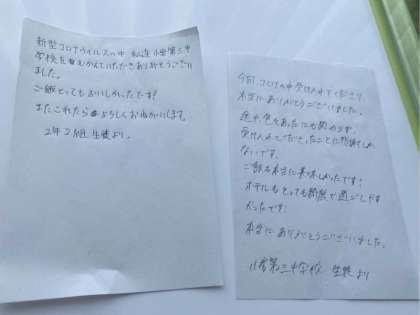 新型コロナウイルスの中 私達 小岩第三中
学校をむかえていただきありがとうござい
ました。
ご飯とってもおいしかったです!
またこれたらよろしくおねがいします。
2年2組 生徒より。
今回、コロナの中受け入れてくださり、
本当にありがとうございました。
受け入れてくださったことに感謝しか
ないです。
ご飯も本当に美味しかったです!
ホテルもとっても綺麗で過ごしやす
かったです!
本当にありがとうございました。
第三中学校 生徒より